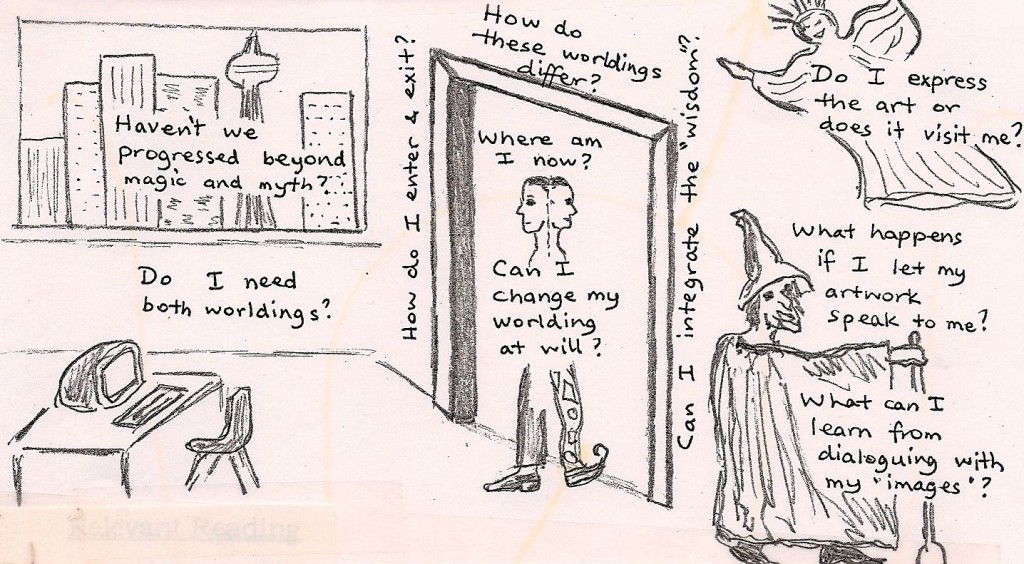 Haven't we
progressed beyond
magic and myth?
Do I need
both worldings?
How do I enter & exit?
How do
these worldings
differ?
Where am
I now?
Can I
change my
worlding
at will?
Can I integrate the "wisdom"?
Do I express
the art or
does it visit me?
What happens
if I let my
artwork
speak to me?
What can I
learn from
dialoguing with
my "images"?
Relevant Reading